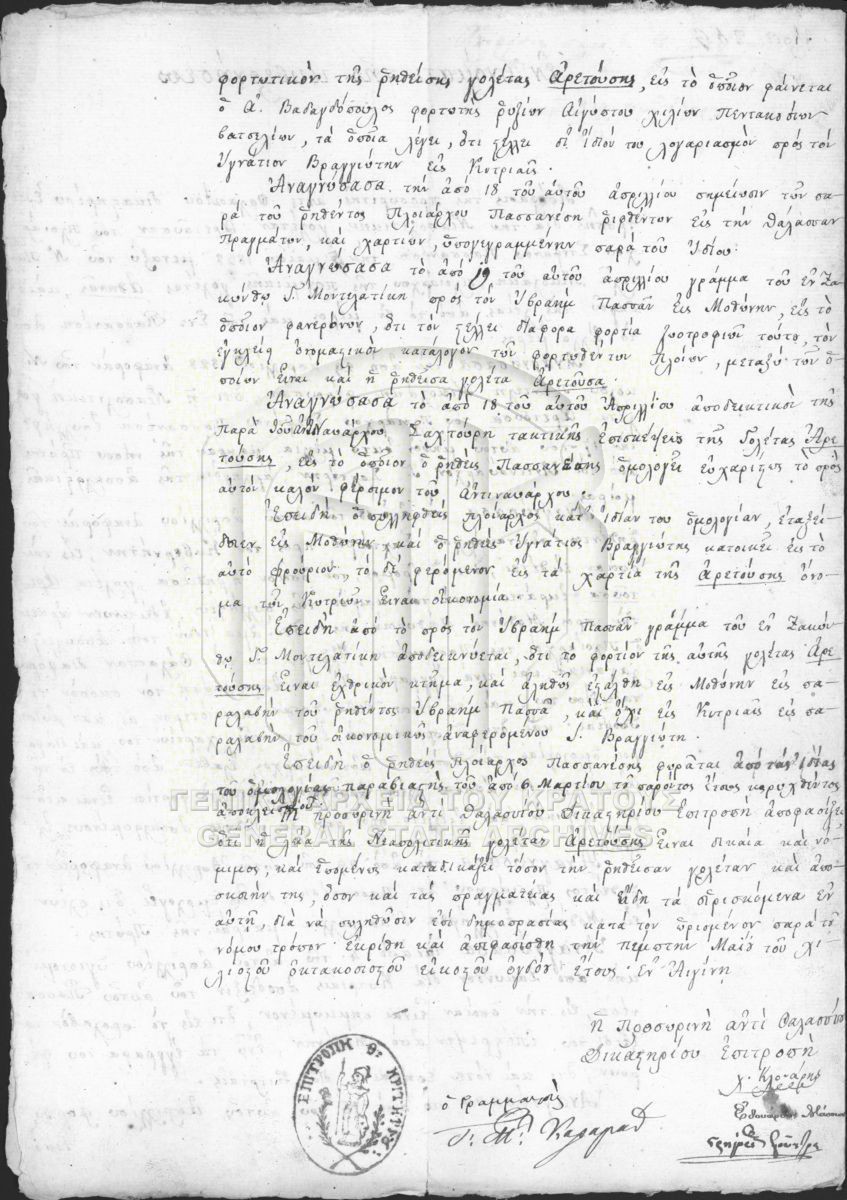 φορτωτικὸν τῆς ῥηθείσης γολέτας Ἀρετούσης, εἰς τὸ ὁποῖον φαίνεται
ὁ Α. φορτωτὴς Αὐγούστου χιλίων πεντακοσίων
βατσελίων, τὰ ὁποῖα λέγει, ὅτι στέλλει δι' ἰδίου του λογαριασμὸν πρὸς τὸν
Ἰγνάτιον Βραγγιώτην εἰς Κυτριαῖς.
Ἀναγνώσασα τὴν ἀπὸ 18 τοῦ αὐτοῦ ἀπριλλίου σημείωσιν τῶν πα-
ρὰ τοῦ ῥηθέντος Πλοιάρχου Πασσανέση ῥιφθέντων εἰς τὴν θάλασσαν
Πραγμάτων, καὶ χαρτίων, ὑπογεγραμμένην παρὰ τοῦ ἰδίου.
Ἀναγνώσασα τὸ ἀπὸ 19 τοῦ αὐτοῦ ἀπριλλίου γράμμα τοῦ ἐν Ζα-
κύνθῳ Γ. Μοντελατίκη πρὸς τὸν Ἰβραῒμ Πασσᾶν εἰς Μοθώνην, εἰς τὸ
ὁποῖον φανερώνων, ὅτι τὸν στέλλει διάφορα φορτία ζωοτροφιῶν τοῦτο, τὸν
ἐγκλείει ὀνομαστικὸν κατάλογον τῶν φορτωθέντων Πλοίων, μεταξὺ τῶν ὁ-
ποίων εἶναι καὶ ἡ ῥηθεῖσα γολέτα Ἀρετοῦσα.
Ἀναγνώσασα τὸ ἀπὸ 18 τοῦ αὐτοῦ Ἀπριλλίου ἀποδεικτικὸν τῆς
παρὰ τοῦ Ἀντιναυάρχου Σαχτούρη τακτικῆς ἐπισκέψεως τῆς Γολέτας Ἀρε-
τούσης, εἰς τὸ ὁποῖον ὁ ῥηθεὶς Πασσανέσης ὁμολογεῖ εὐχαρίστως τὸ πρὸς
αὐτὸν καλὸν φέρσιμον τοῦ Ἀντιναυάρχου.
Ἐπειδὴ ὁ συλληφθεὶς πλοίαρχος κατ' ἰδίαν του ὁμολογίαν, ἐταξεί-
δευεν εἰς Μοθώνην, καὶ ὁ ῥηθεὶς Ἰγνάτιος Βραγγιώτης κατοικεῖ εἰς τὸ
αὐτὸ φρούριον, τὸ δὲ φερόμενον εἰς τὰ χαρτία τῆς Ἀρετούσης ὄνο-
μα τῶν Κυτριῶν εἶναι οἰκονομία.
Ἐπειδὴ ἀπὸ τὸ πρὸς τὸν Ἰβραῒμ Πασσᾶν γράμμα τοῦ ἐν Ζακύν-
θῳ Γ. Μοντελατίκη ἀποδεικνύεται, ὅτι τὸ φορτίον τῆς αὐτῆς γολέτας Ἀρε-
τούσης εἶναι ἐχθρικὸν κτῆμα, καὶ ἀληθῶς ἐστάλθη εἰς Μοθώνην εἰς πα-
ραλαβὴν τοῦ ῥηθέντος Ἰβραῒμ Πασσᾶ, καὶ ὄχι εἰς Κυτριαῖς εἰς πα-
ραλαβὴν τοῦ οἰκονομικῶς ἀναφερομένου Ι. Βραγγιώτη.
Ἐπειδὴ ὁ ῥηθεὶς Πλοίαρχος Πασσανέσης φωρᾶται ἀπὸ τὰς ἰδίας
του ὁμολογίας παραβιαστὴς τοῦ ἀπὸ 6 Μαρτίου τοῦ παρόντος ἔτους κηρυχθέντος
ἀποκλεισμοῦ
Ἡ προσωρινὴ ἀντὶ θαλασσίου Δικαστηρίου Ἐπιτροπὴ ἀποφασίζει,
ὅτι ἡ λεία τῆς Νεαπολιτικῆς γολέτας Ἀρετούσης εἶναι δικαία καὶ νό-
μιμος, καὶ ἑπομένως καταδικάζει τόσον τὴν ῥηθεῖσαν γολέταν καὶ ἀπο-
σκευήν της, ὅσον καὶ τὰς πραγματείας καὶ εἴδη τὰ εὑρισκόμενα ἐν
αὐτῇ, διὰ νὰ πωληθῶσιν ἐπὶ δημοπρασίας κατὰ τὸν ὡρισμένον παρὰ τοῦ
νόμου τρόπον. Ἐκρίθη καὶ ἀπεφασίσθη τὴν πέμπτην Μαΐου τοῦ χι-
λιοστοῦ ὀκτακοσιοστοῦ εἰκοστοῦ ὀγδόου ἔτους. Ἐν Αἰγίνῃ
Ἡ Προσωρινὴ ἀντὶ Θαλασσίου
Δικαστηρίου Ἐπιτροπὴ
Χ. Κλονάρης
ὁ Γραμματεὺς
Ἐδουάρδος Μάσσων
ΕΠΙΤΡΟΠΗ
ΓΕΝΙΚΑ ΑΡΧΕΙΑ ΤΟΥ ΚΡΑΤΟΥΣ
GENERAL STATE ARCHIVES